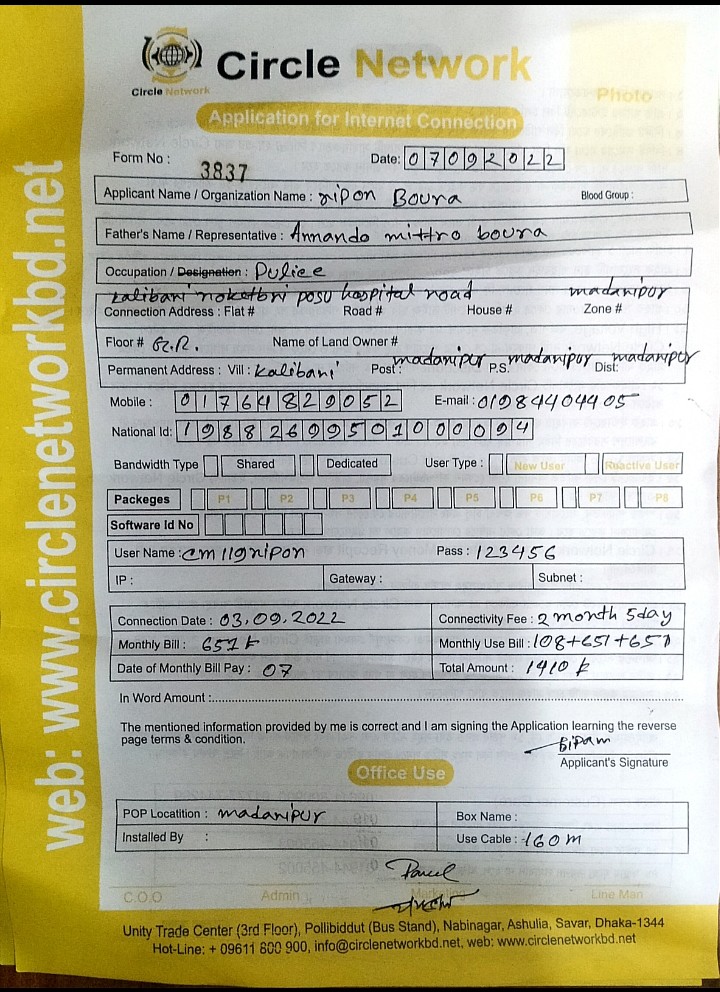 Circle Network
Circle Network
Photo
Application for Internet Connection
Form No : 3837 Date: 07092022
Applicant Name / Organization Name : ripon Boura Blood Group :
Father's Name / Representative : Annando mittro boura
Occupation / Designation : Puliee
kalibari noketbri posu hospital road madaripur
Connection Address : Flat # Road # House # Zone #
Floor # G.R. Name of Land Owner #
Permanent Address : Vill : kalibari Post : madaripur P.S. madaripur Dist: madaripur
Mobile : 01764829052 E-mail : 01984404405
National Id: 19882699501000094
Bandwidth Type Shared Dedicated User Type : New User Reactive User
Packeges P1 P2 P3 P4 P5 P6 P7 P8
Software Id No
User Name : cm119ripon Pass : 123456
IP : Gateway : Subnet :
Connection Date : 03.09.2022 Connectivity Fee : 2 month 5day
Monthly Bill : 651 Monthly Use Bill : 108+651+651
Date of Monthly Bill Pay : 07 Total Amount : 1410
In Word Amount :
The mentioned information provided by me is correct and I am signing the Application learning the reverse
page terms & condition.
Bipam
Applicant's Signature
Office Use
POP Locatition : madaripur Box Name :
Installed By : Use Cable : 160m
C.O.O Admin Marketing Line Man
Unity Trade Center (3rd Floor), Pollibiddut (Bus Stand), Nabinagar, Ashulia, Savar, Dhaka-1344
Hot-Line: + 09611 800 900, info@circlenetworkbd.net, web: www.circlenetworkbd.net
web: www.circlenetworkbd.net